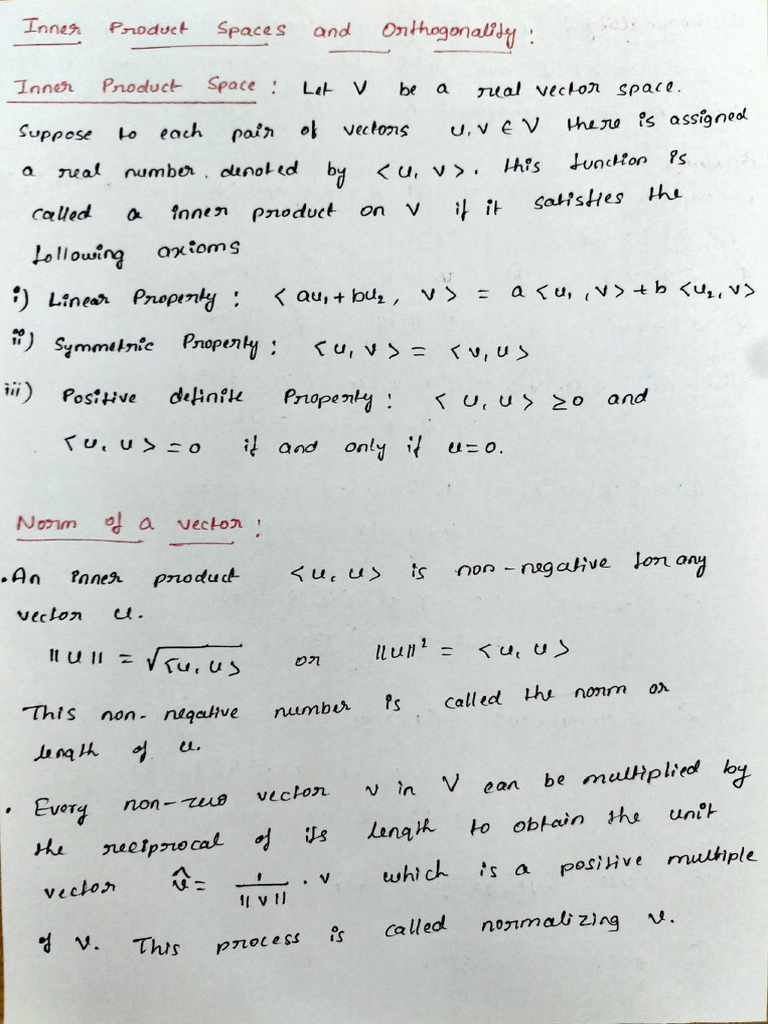 Inner Product Spaces and Orthogonality:
Inner Product Space: Let V be a real vector space.
Suppose to each pair of vectors u, v ∈ V there is assigned
a real number, denoted by <u, v>. This function is
called a inner product on V if it satisfies the
following axioms
i) Linear Property: <au₁+bu₂, v> = a<u₁, v>+b<u₂, v>
ii) Symmetric Property: <u, v> = <v, u>
iii) Positive definite Property: <u, u> ≥0 and
<u, u> = 0 if and only if u=0.
Norm of a vector:
• An inner product <u, u> is non-negative for any
vector u.
||u|| = √<u, u> or ||u||² = <u, u>
This non-negative number is called the norm or
length of u.
• Every non-zero vector v in V can be multiplied by
the reciprocal of its length to obtain the unit
vector v̂ = 1/||v|| . v which is a positive multiple
of v. This process is called normalizing v.